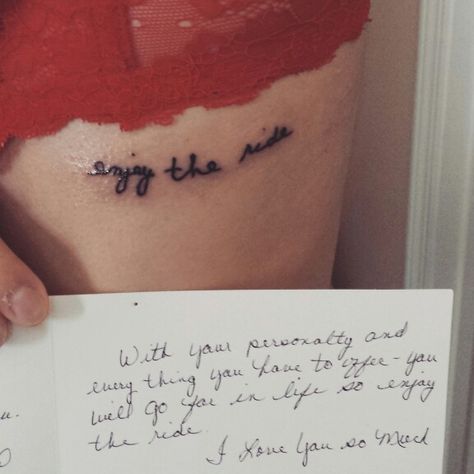 enjoy the ride
With your personalty and
every thing you have to offer - you
will go far in life so enjoy
the ride.
I Love You so Much
u.